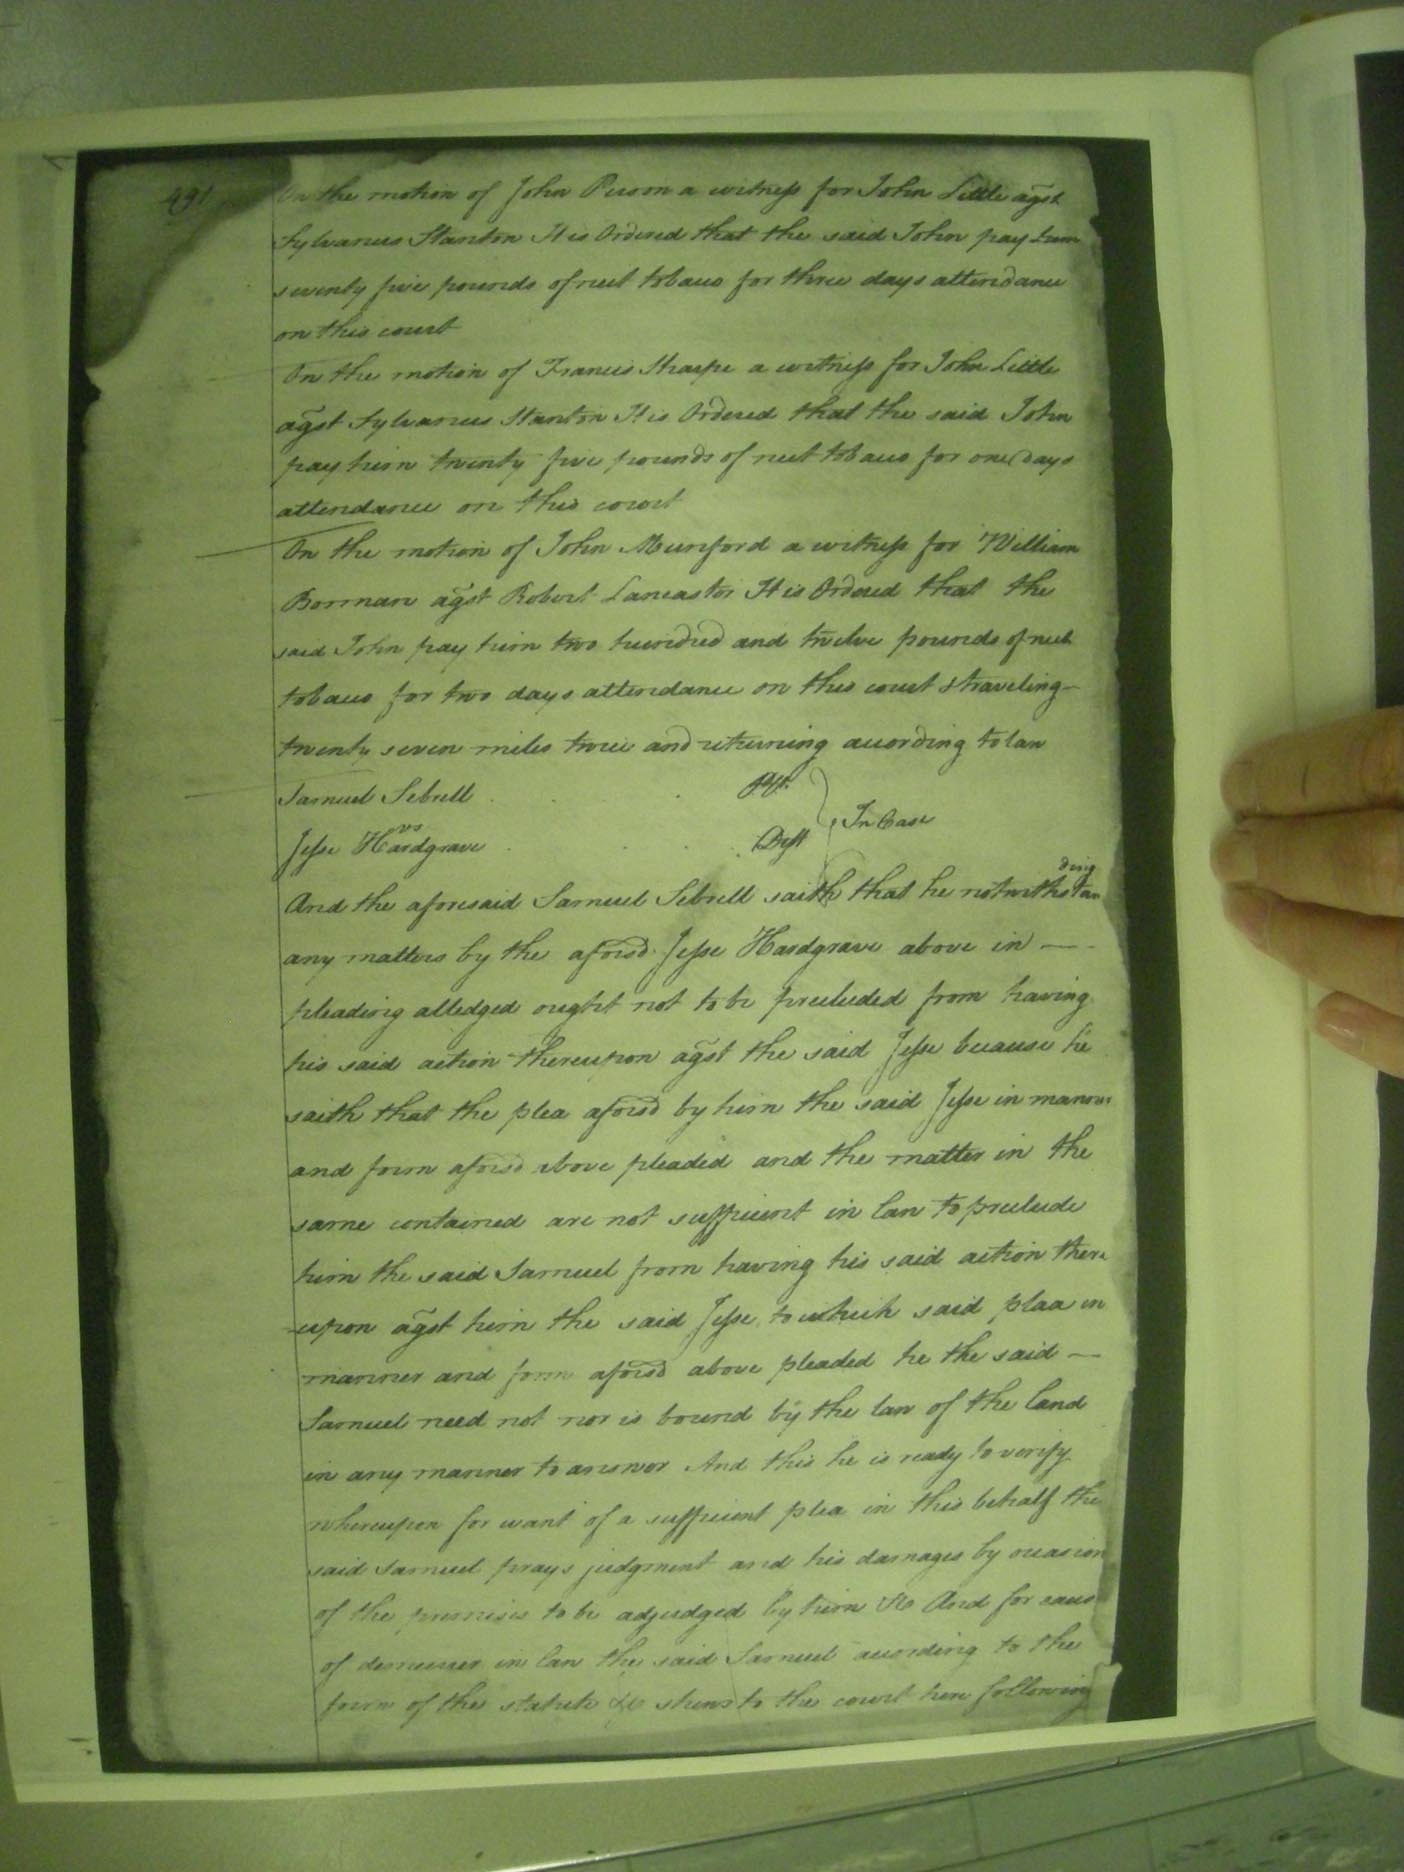 491
On the motion of John Person a witness for John Little agst
Sylvanus Stanton It is Ordered that the said John pay him
seventy five pounds of neet tobaco for three days attendance
on this court
On the motion of Francis Sharpe a witness for John Little
agst Sylvanus Stanton It is Ordered that the said John
pay him twenty five pounds of neet tobaco for one days
attendance on this court
On the motion of John Munford a witness for William
Borman agst Robert Lancaster It is Ordered that the
said John pay him two hundred and twelve pounds of neet
tobaco for two days attendance on this court & traveling
twenty seven miles twice and returning acording to law
Samuel Sebrell Plt.
vs In Case
Jesse Hardgrave Deft
ding
And the aforesaid Samuel Sebrell saith that he notwithstan
any matters by the aforsd. Jesse Hardgrave above in —
pleading alledged ought not to be precluded from having
his said action thereupon agst the said Jesse because he
saith that the plea aforsd by him the said Jesse in manour
and form aforsd above pleaded and the matter in the
same contained are not sufficient in law to preclude
him the said Samuel from having his said action there
-upon agst him the said Jesse, to which said plaa in
manner and form aforsd above pleaded he the said —
Samuel need not nor is bound by the law of the land
in any manner to answer And this he is ready to verify
whereupon for want of a sufficient plea in this behalf the
said Samuel prays judgment and his damages by occasion
of the premises to be adjudged by him &c And for caus
of demurrer in law the said Samuel acording to the
form of the statute &c shews to the court here following